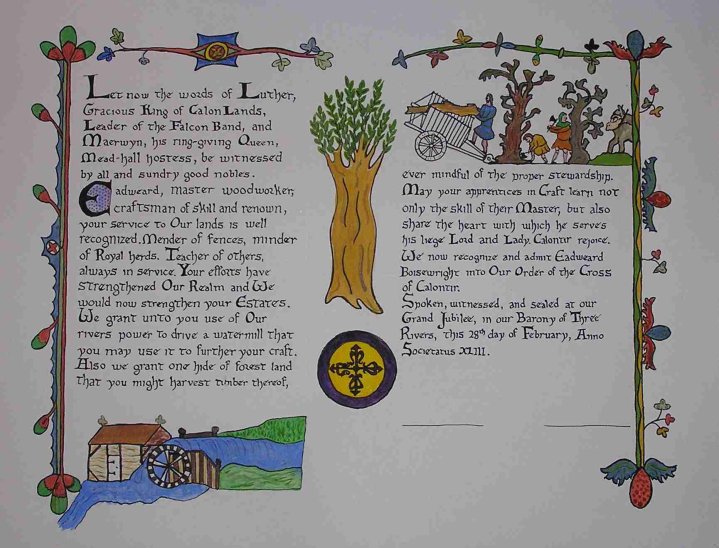 Let now the words of Luther,
Gracious King of Calon Lands,
Leader of the Falcon Band, and
Maerwyn, his ring-giving Queen,
Mead-hall hostess, be witnessed
by all and sundry good nobles.
Eadweard, master woodworker,
craftsman of skill and renown,
your service to Our lands is well
recognized. Mender of fences, minder
of Royal herds. Teacher of others,
always in service. Your efforts have
strengthened Our Realm and We
would now strengthen your Estates.
We grant unto you use of Our
rivers power to drive a watermill that
you may use it to further your craft.
Also we grant one hide of forest land
that you might harvest timber thereof,
ever mindful of the proper stewardship.
May your apprentices in Craft learn not
only the skill of their Master, but also
share the heart with which he serves
his liege Lord and Lady. Calontir rejoice.
We now recognize and admit Eadweard
Boisewright into Our Order of the Cross
of Calontir.
Spoken, witnessed, and sealed at our
Grand Jubilee, in our Barony of Three
Rivers, this 28th day of February, Anno
Societatus XLIII.